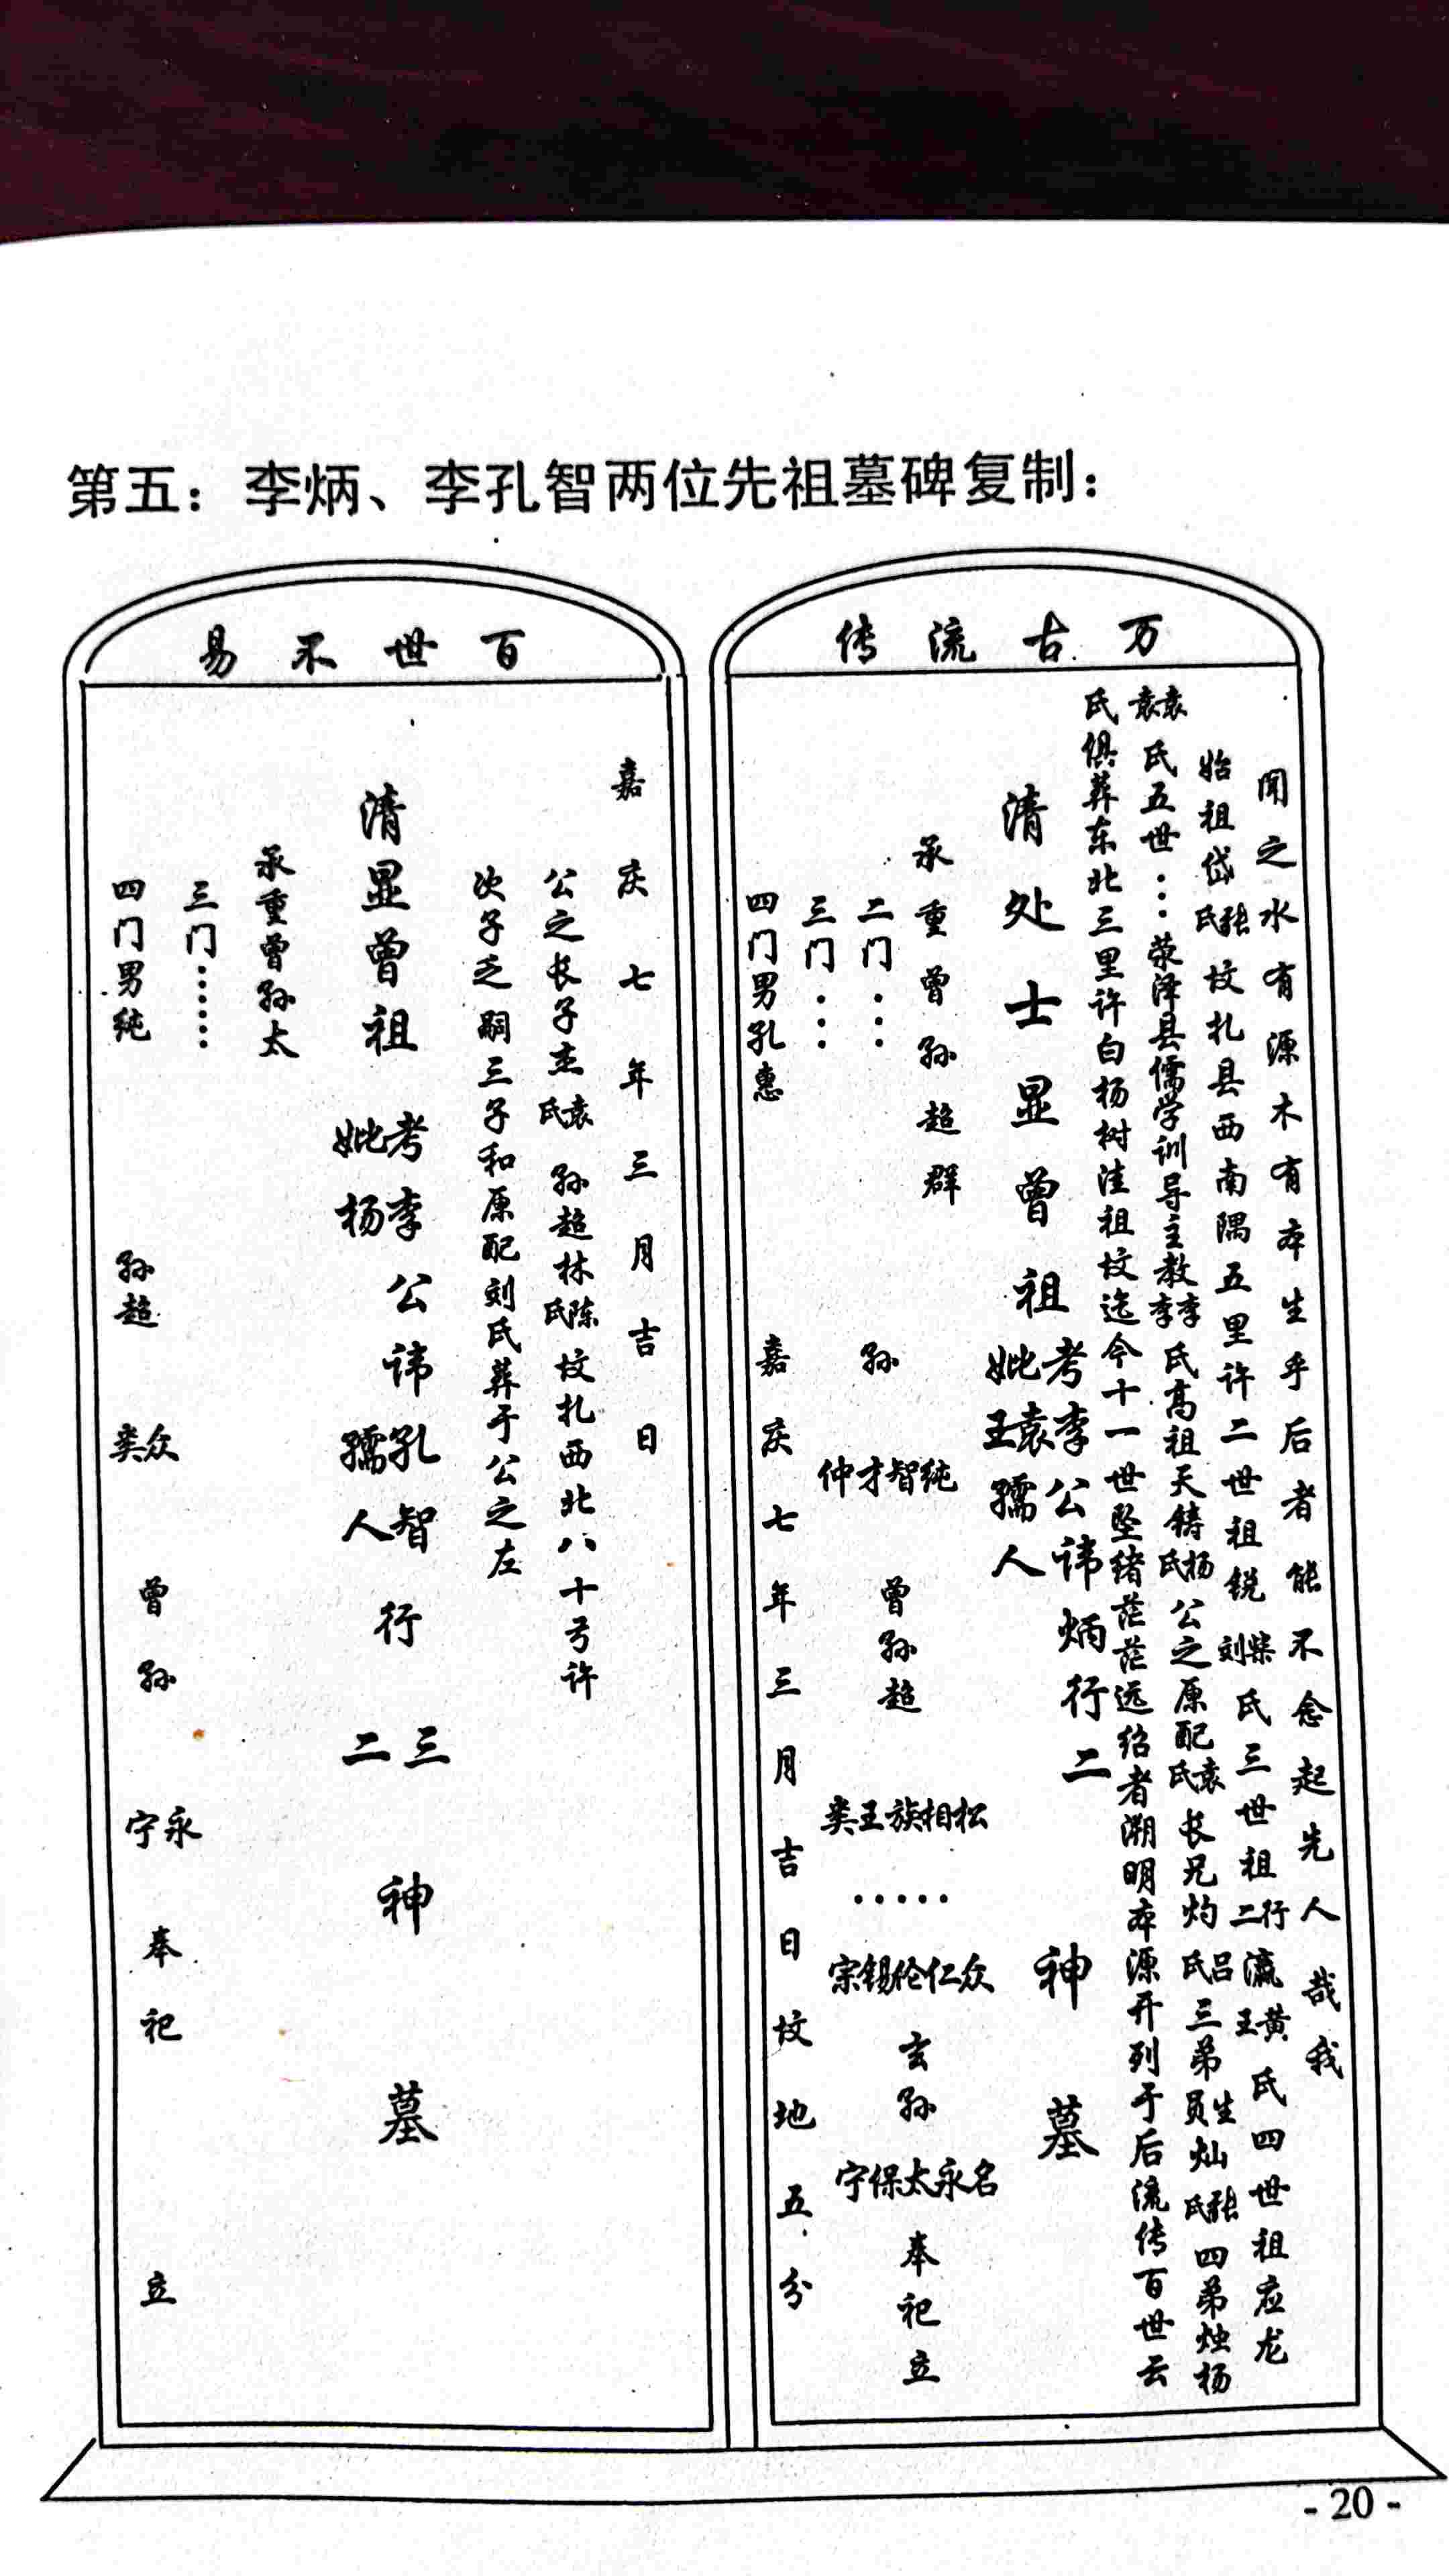 第五：李炳、李孔智两位先祖墓碑复制：
万古流传
闻之水有源木有本生乎后者能不念起先人哉我
始祖岱张氏坟扎县西南隅五里许二世祖锐柴刘氏三世祖行二瀛黄王氏四世祖应龙
袁袁氏五世…荥泽县儒学训导主教李李氏高祖天铸杨氏公之原配袁氏长兄灼吕氏三弟生员灿张氏四弟烛杨
氏俱葬东北三里许白杨树洼祖坟迄今十一世坠绪茫茫远绍者溯明本源开列于后流传百世云
清处士显曾祖考李公讳炳行二妣袁王孺人神墓
承重曾孙超群
二门…
三门…
四门男孔惠
孙纯智才仲
曾孙超松相族王类
……
众仁伦锡宗
玄孙名永太保宁
奉祀立
嘉庆七年三月吉日坟地五分
百世不易
嘉庆七年三月吉日
公之长子杰袁氏孙超林陈氏坟扎西北八十弓许
次子乏嗣三子和原配刘氏葬于公之左
清显曾祖考李公讳孔智行三妣杨孺人二神墓
承重曾孙太
三门……
四门男纯
孙超众类
曾孙永宁
奉祀立
- 20 -